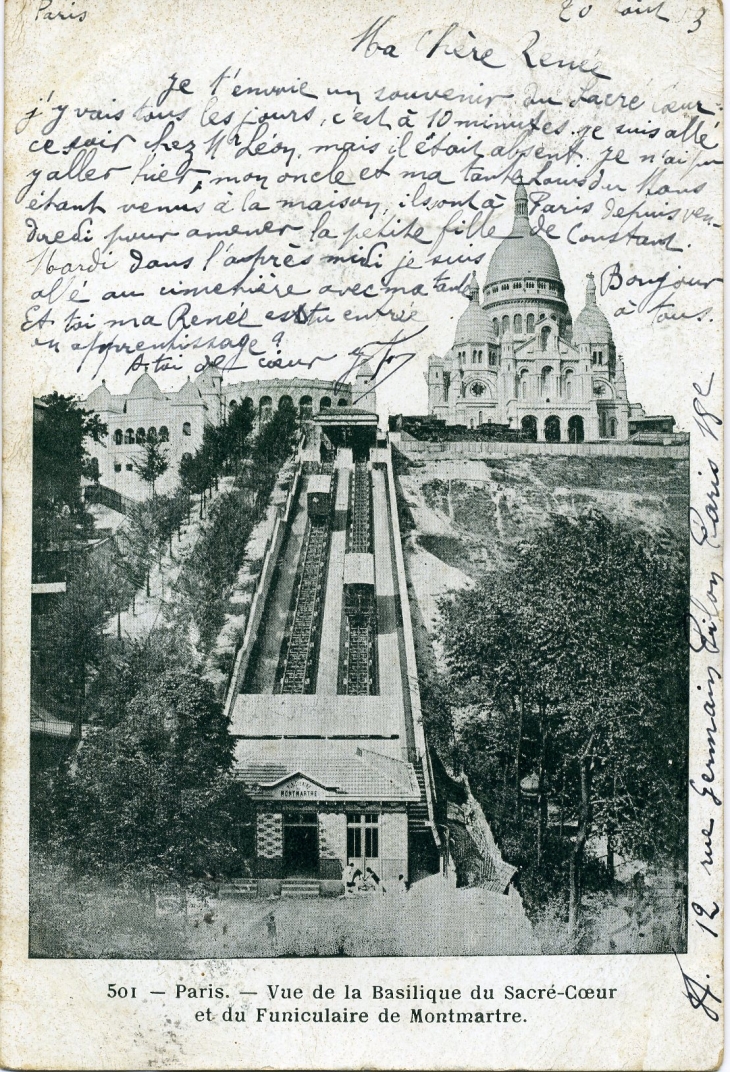 Paris
20 août
3
Ma Chère Renée
Je t'envoie un souvenir du Sacré Cœur
j'y vais tous les jours, c'est à 10 minutes. je suis allé
ce soir chez Mr Léon, mais il était absent. Je n'ai pu
y aller hier, mon oncle et ma tante du Mans
étant venus à la maison, ils sont à Paris depuis ven-
dredi pour amener la petite fille de Constant.
Mardi dans l'après midi je suis
allé au cimetière avec ma tante
Bonjour
à tous.
Et toi ma Renée es tu entrée
en apprentissage ?
A toi de cœur
12 rue Germain Pilon Paris 18e
FUNICULAIRE
MONTMARTRE
501 — Paris. — Vue de la Basilique du Sacré-Cœur
et du Funiculaire de Montmartre.